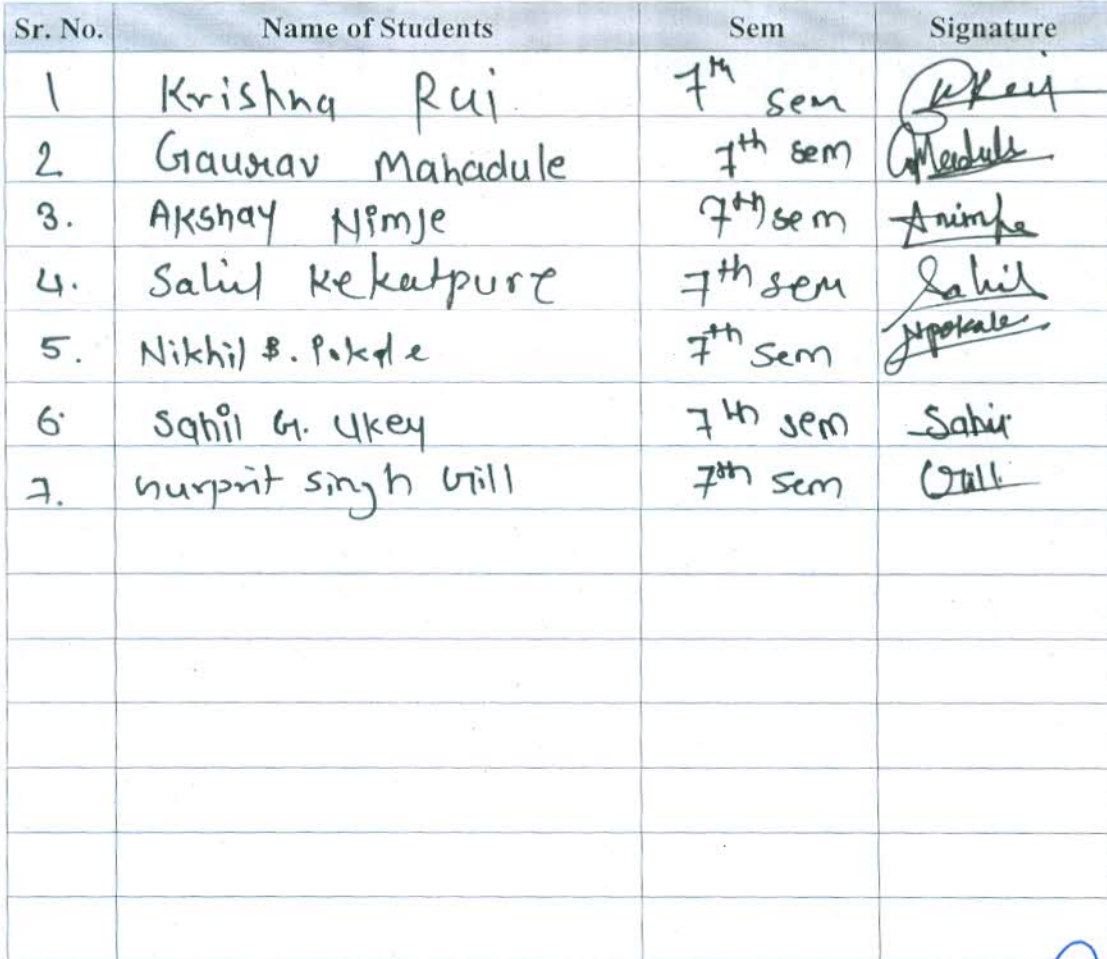 Sr. No. Name of Students Sem Signature
1 Krishna Rai 7th sem
2 Gaurav Mahadule 7th sem
3. Akshay Nimje 7th sem
4. Sahil Kekatpure 7th sem Sahil
5. Nikhil B. Pokale 7th sem Npokale
6. Sahil G. Ukey 7th sem Sahil
7. Gurprit singh Gill 7th sem Gill